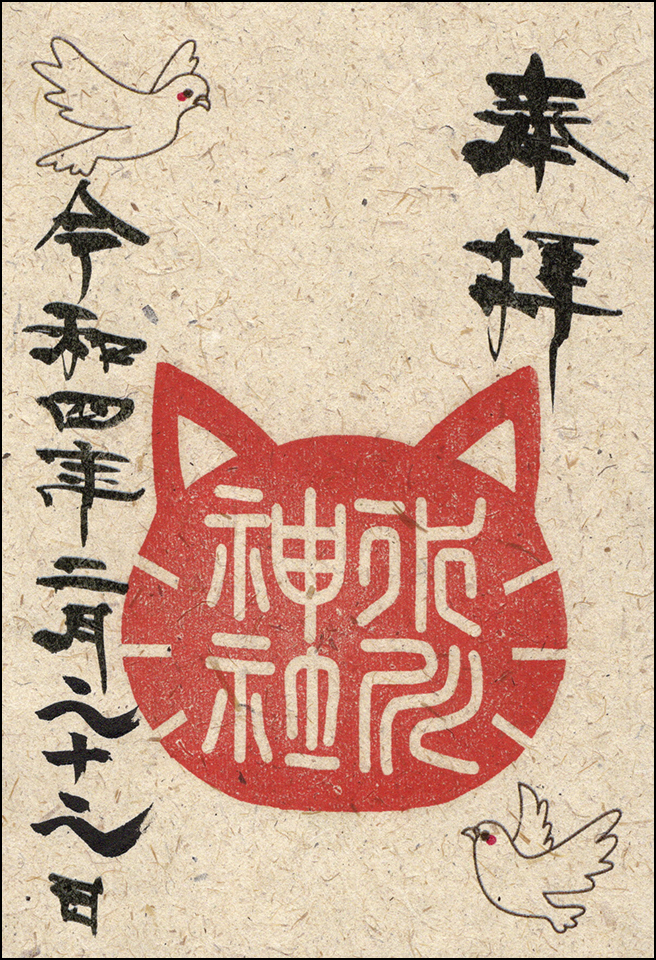 奉拝
氷川
神社
令和四年二月二十二日